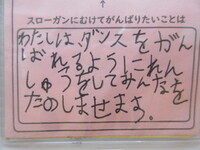 スローガンにむけてがんばりたいことは
わたしは、ダンスをがん
ばれるようにれん
しゅうをしてみんなを
たのしませます。